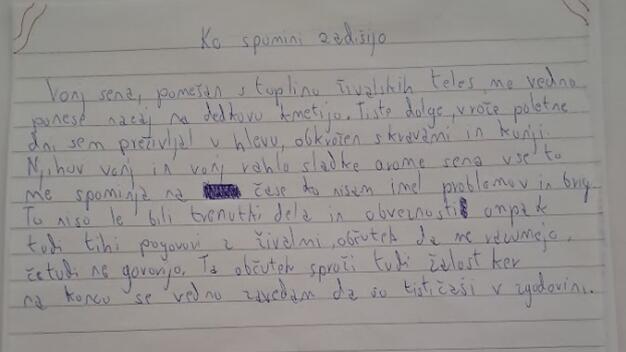 Ko spomini zadišijo
Vonj sena, pomešan s toplino živalskih teles, me vedno
ponese nazaj na dedkovo kmetijo. Tiste dolge, vroče poletne
dni sem preživljal v hlevu, obkrožen s kravami in konji.
Njihov vonj in vonj rahlo sladke arome sena vse to
me spominja na čase ko nisem imel problemov in brig.
To niso le bili trenutki dela in obveznosti ampak
tudi tihi pogovori z živalmi, občutek da me razumejo,
četudi ne govorijo. Ta občutek sproži tudi žalost ker
na koncu se vedno zavedam da so tisti časi v zgodovini.